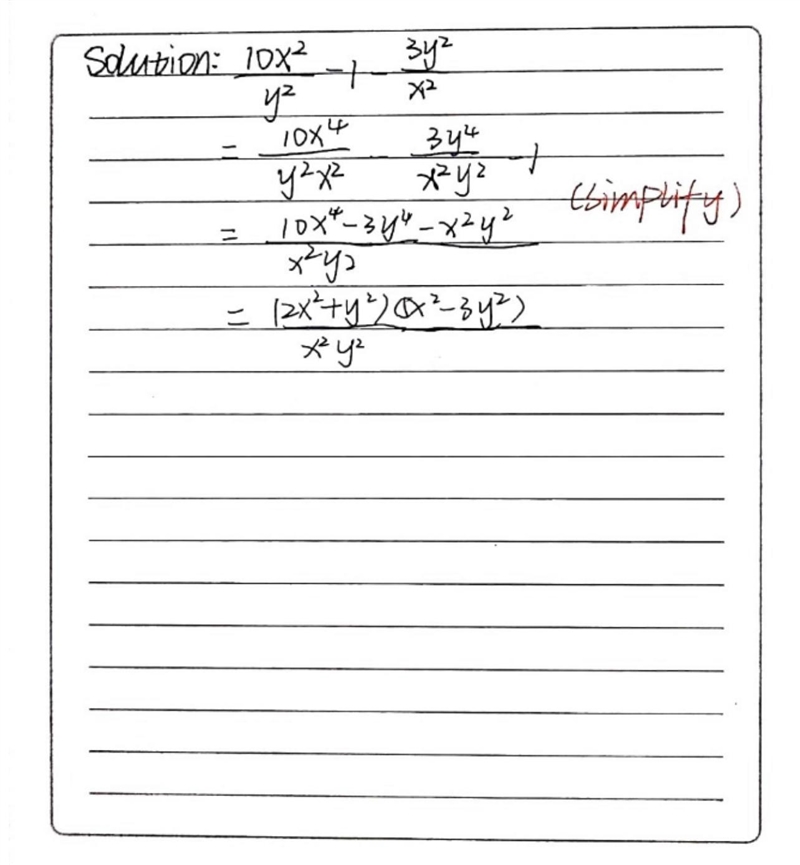 Solution: 10x²/y² - 1 - 3y²/x²
= 10x⁴/y²x² - 3y⁴/x²y² - 1
(simplify)
= 10x⁴-3y⁴-x²y²/x²y2
= (2x²+y²)(x²-3y²)/x²y²